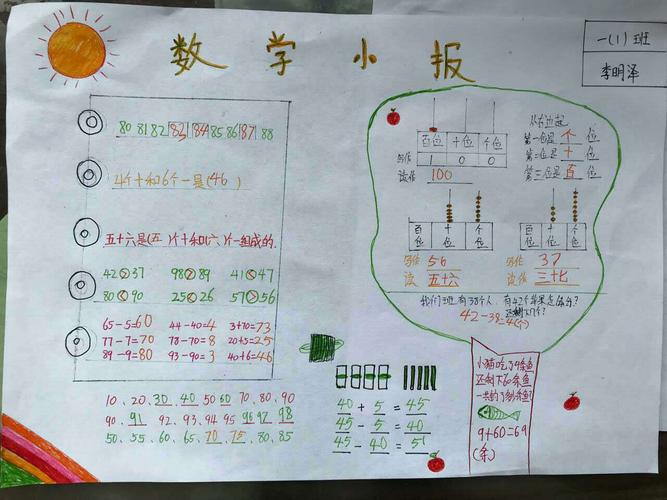 数学小报
一(1)班
李明泽
80 81 82 83 84 85 86 87 88
4个十和6个一是(46)
五十六是(五)个十和(六)个一组成的.
42>37 98>89 41<47
80<90 25<26 57>56
65-5=60 44-40=4 3+70=73
77-7=70 78-70=8 20+5=25
89-9=80 93-90=3 40+6=46
10、20、30 40 50 60 70、80、90
90、91 92、93、94、95 96 97、98
50、55、60、65、70、75、80、85
百位 十位 个位
写作 1 0 0
读作 100
从右边起
第一位是 个 位
第二位是 十 位
第三位是 百 位
百位 十位 个位
写作 56
读 五十六
百位 十位 个位
写作 37
读作 三十七
我们班有38个人,有42个苹果
还剩下几个?
42-38=4(个)
40+5=45
45-5=40
45-40=5
小猫吃了9条鱼
还剩下60条鱼
一共
9+60=69
(条)